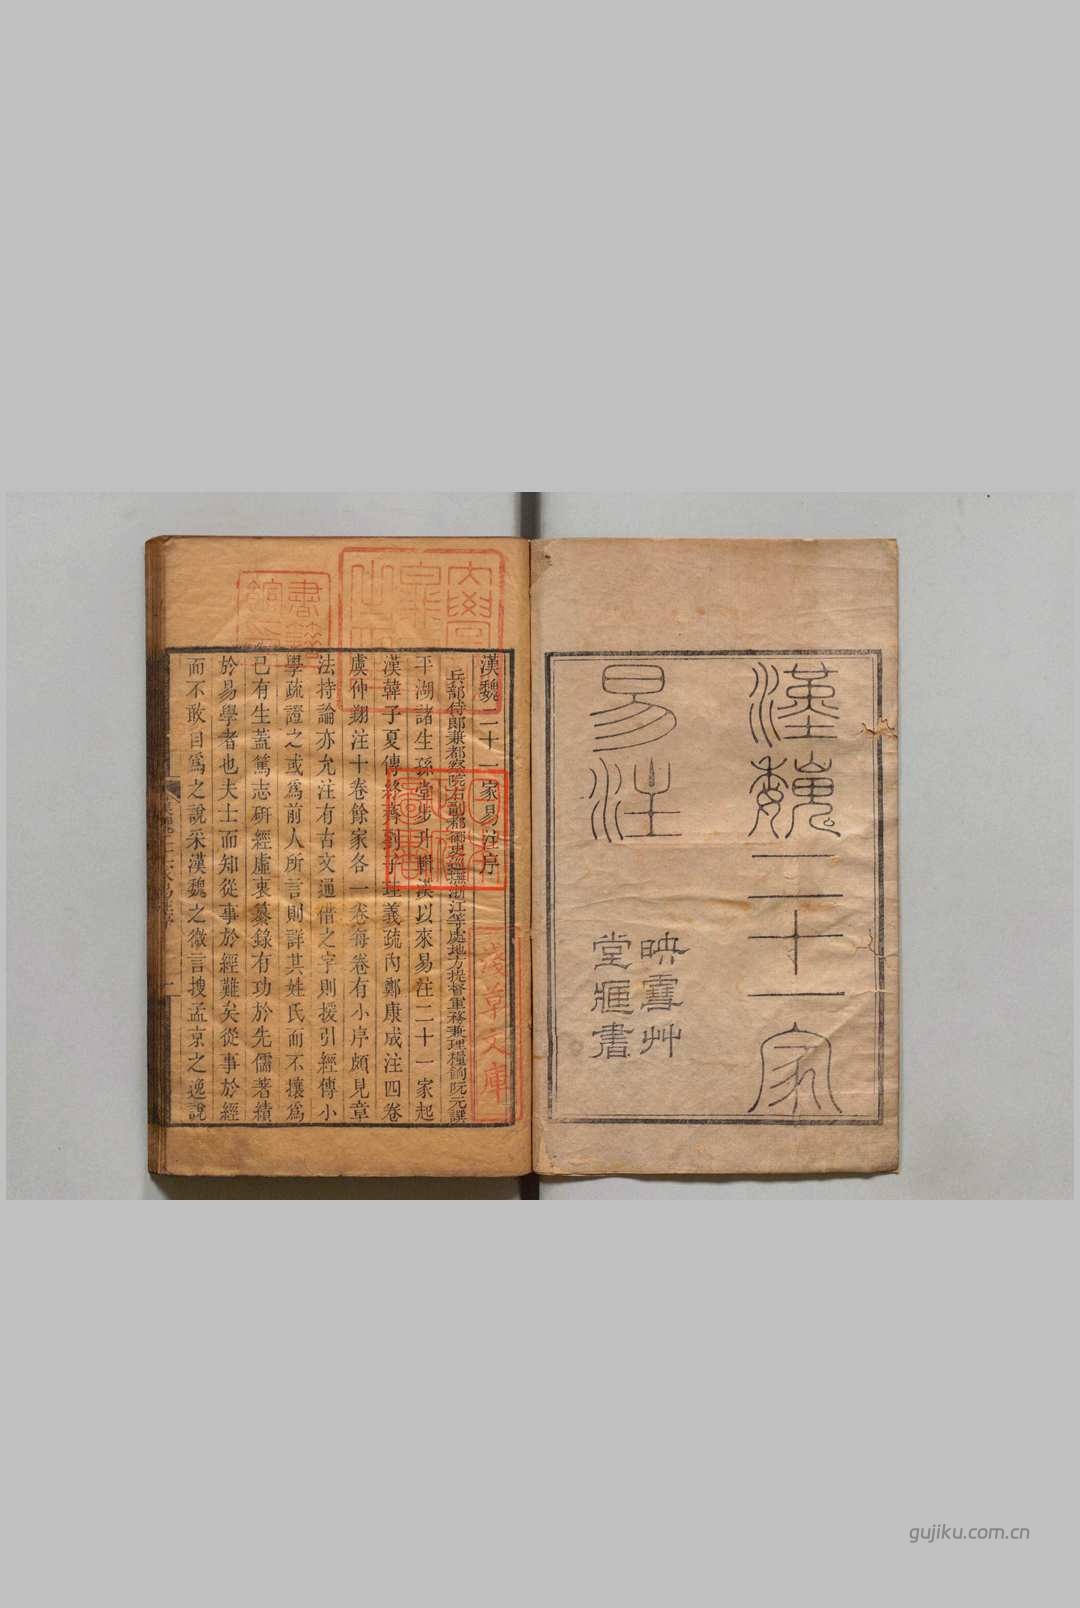 漢魏二十一家
易注
映雪艸
堂雕書
漢魏二十一家易注序
兵部侍郎兼都察院右副都御史巡撫浙江等處地方提督軍務兼理糧餉阮元譔
平湖諸生孫堂步升輯漢以來易注二十一家起
漢韓子夏傳終齊劉子珪義疏內鄭康成注四卷
虞仲翔注十卷餘家各一卷每卷有小序頗見章
法持論亦允注有古文通借之字則援引經傳小
學疏證之或爲前人所言則詳其姓氏而不攘爲
己有生蓋篤志研經虛衷纂錄有功於先儒著績
於易學者也夫士而知從事於經難矣從事於經
而不敢自爲之說采漢魏之微言搜孟京之逸說
淺草文庫
書籍館
gujiku.com.cn